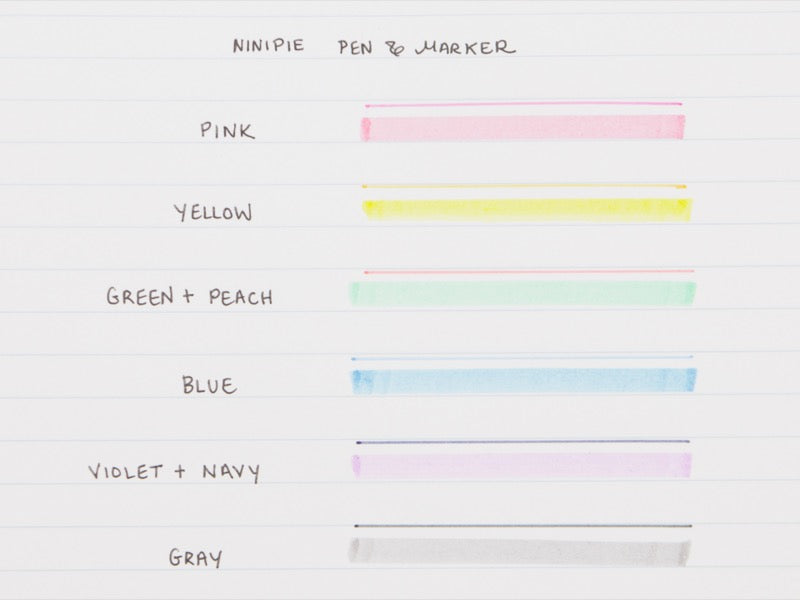 NINIPIE PEN & MARKER
PINK
YELLOW
GREEN + PEACH
BLUE
VIOLET + NAVY
GRAY